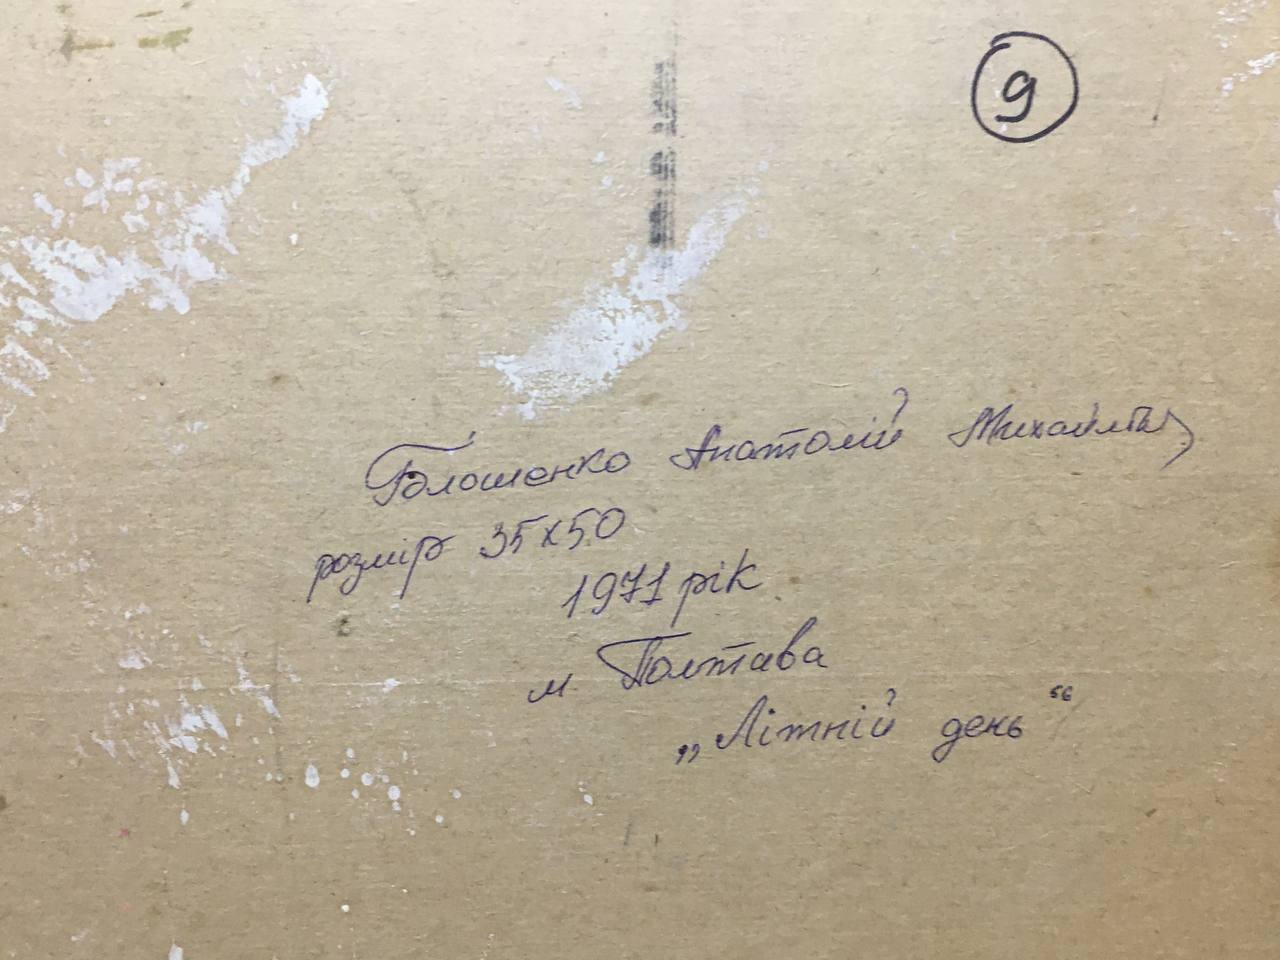 9
Голошенко Анатолій
розмір 35х50
1971 рік
м. Полтава
„Літній день“